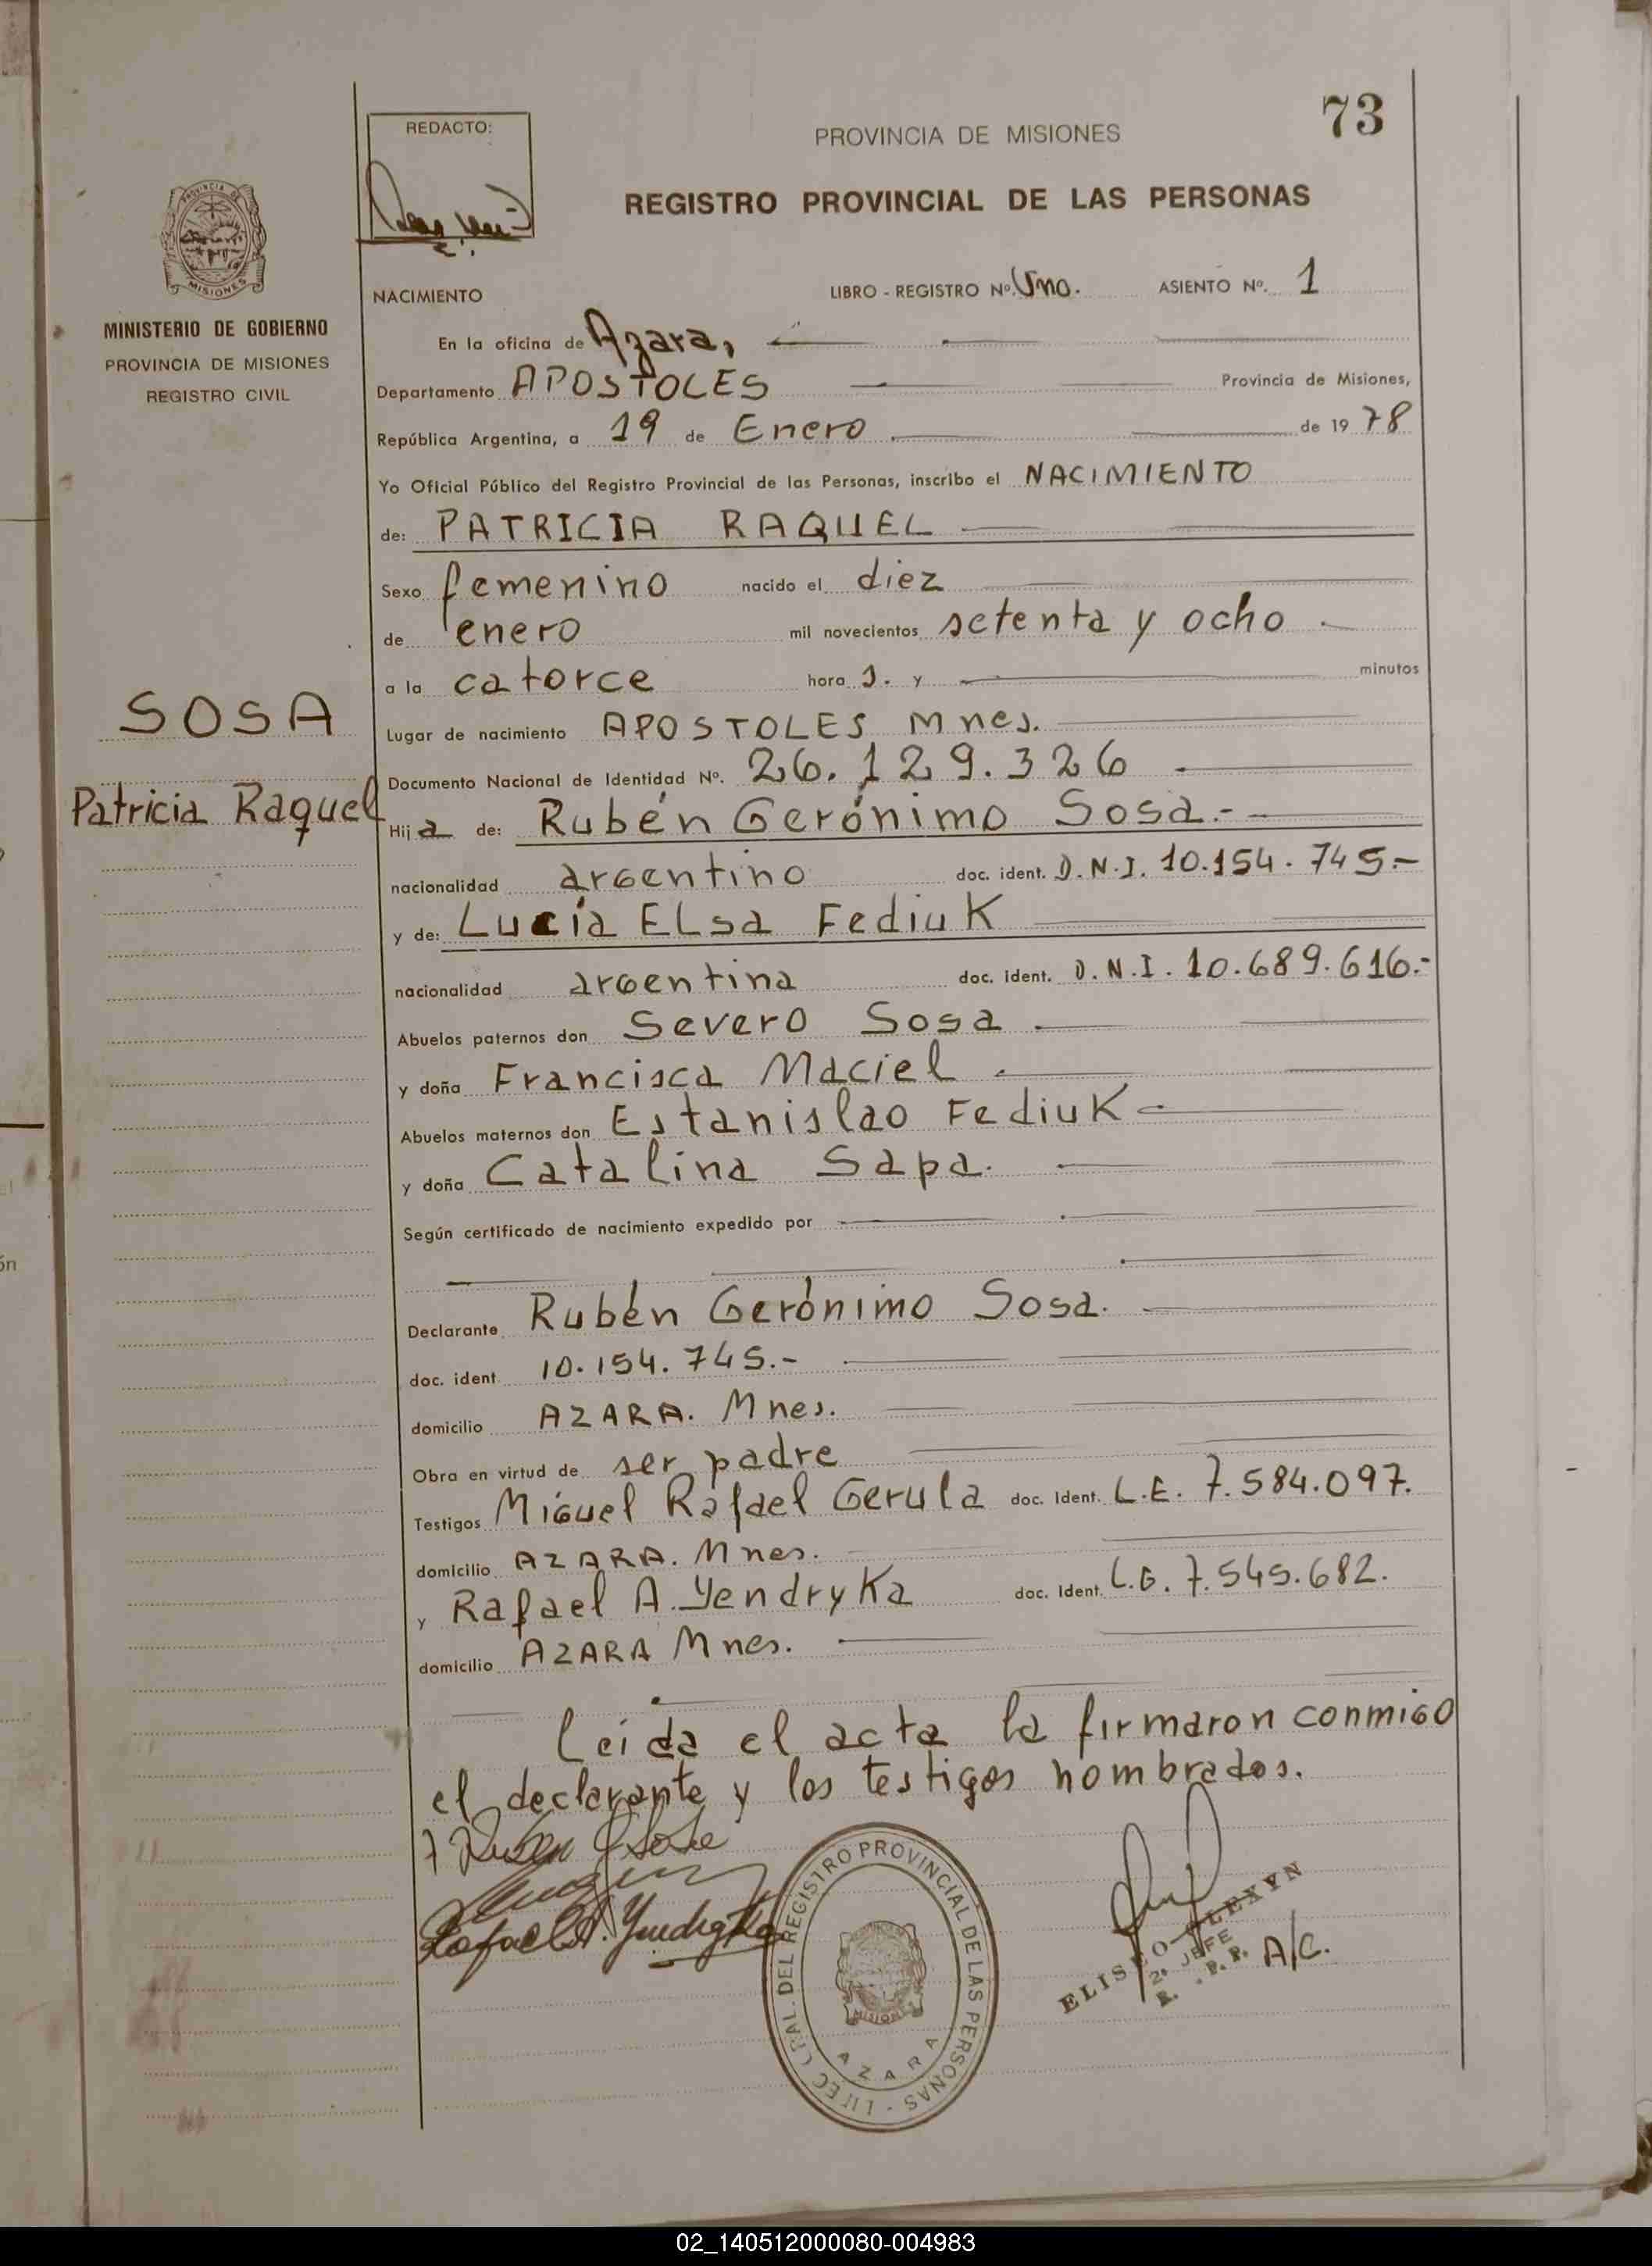 73
REDACTO:
PROVINCIA DE MISIONES
REGISTRO PROVINCIAL DE LAS PERSONAS
MISIONES
MINISTERIO DE GOBIERNO
PROVINCIA DE MISIONES
REGISTRO CIVIL
NACIMIENTO LIBRO - REGISTRO Nº. Uno. ASIENTO Nº. 1
En la oficina de Azara,
Departamento APOSTOLES Provincia de Misiones,
República Argentina, a 19 de Enero de 19 78
Yo Oficial Público del Registro Provincial de las Personas, inscribo el NACIMIENTO
de: PATRICIA RAQUEL
Sexo femenino nacido el diez
de enero mil novecientos setenta y ocho
a la catorce hora s. y minutos
SOSA
Lugar de nacimiento APOSTOLES Mnes.
Documento Nacional de Identidad Nº. 26.129.326
Patricia Raquel
Hij a de: Rubén Gerónimo Sosa.-
nacionalidad argentino doc. ident. D.N.I. 10.154.745.-
y de: Lucía ELsa Fediuk
nacionalidad argentina doc. ident. D.N.I. 10.689.616.-
Abuelos paternos don Severo Sosa
y doña Francisca Maciel
Abuelos maternos don Estanislao Fediuk
y doña Catalina Sapa.
Según certificado de nacimiento expedido por
Declarante Rubén Gerónimo Sosa.
doc. ident. 10.154.745.-
domicilio AZARA. Mnes.
Obra en virtud de ser padre
Testigos Miguel Rafael Gerula doc. Ident. L.E. 7.584.097.
domicilio AZARA. Mnes.
y Rafael A. Yendryka doc. Ident. L.E. 7.545.682.
domicilio AZARA Mnes.
Leída el acta la firmaron conmigo
el declarante y los testigos nombrados.
Ruben G Sosa
Rafael A. Yendryka
DEL REGISTRO PROVINCIAL DE LAS PERSONAS
MISIONES
AZARA
ELISEO OLEXYN
2º JEFE
A/C.
02_140512000080-004983